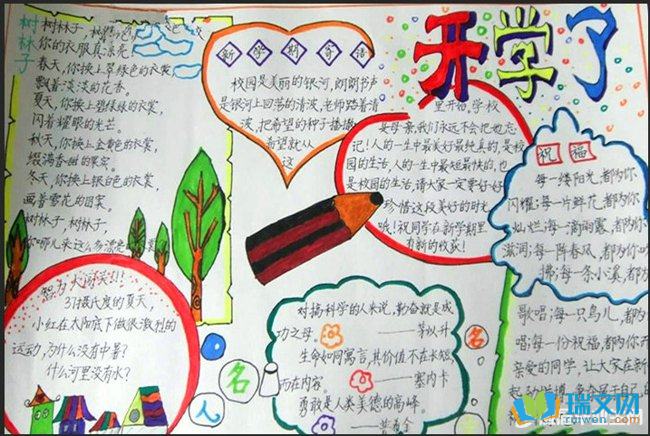 开学了
树林子
树林子，树林子
你的衣服真漂亮
春天，你换上翠绿色的衣裳
飘着淡淡的花香。
夏天，你换上碧绿色的衣裳
闪着耀眼的光芒。
秋天，你换上金黄色的衣裳，
缀满香甜的果实。
冬天，你换上银白色的衣裳，
画着雪花的图案。
树林子，树林子，
你哪儿来这么多漂色
新学期寄语
校园是美丽的银河，朗朗书声
是银河上回荡的清波，老师踏着清
波，把希望的种子播撒
希望就从
这
里开始，学校
是母亲，我们永远不会把她忘
记！人的一生中最美好最纯真的，是校
园的生活，人的一生中最短最快的，也
是校园的生活，请大家一定要好好
珍惜这段美好的时光
哦！祝同学在新学期里
有新的收获！
祝福
每一缕阳光，都为你
闪耀；每一片鲜花，都为你
灿烂；每一滴雨露，都为你
滋润；每一阵春风，都为你吹
拂；每一条小溪，都为
歌唱；每一只鸟儿，都为
唱；每一份祝福，都为
亲爱的同学，让大家在新
智力大闯关！！
37摄氏度的夏天，
小红在太阳底下做很激烈的
运动，为什么没有中暑？
什么河里没有水？
名人名
对搞科学的人来说，勤奋就是成
功之母
——茅以升
生命如同寓言，其价值不在长短
而在内容。
——塞内卡
勇敢是人类美德的高峰。
普希金
瑞文网
ruiwen.com